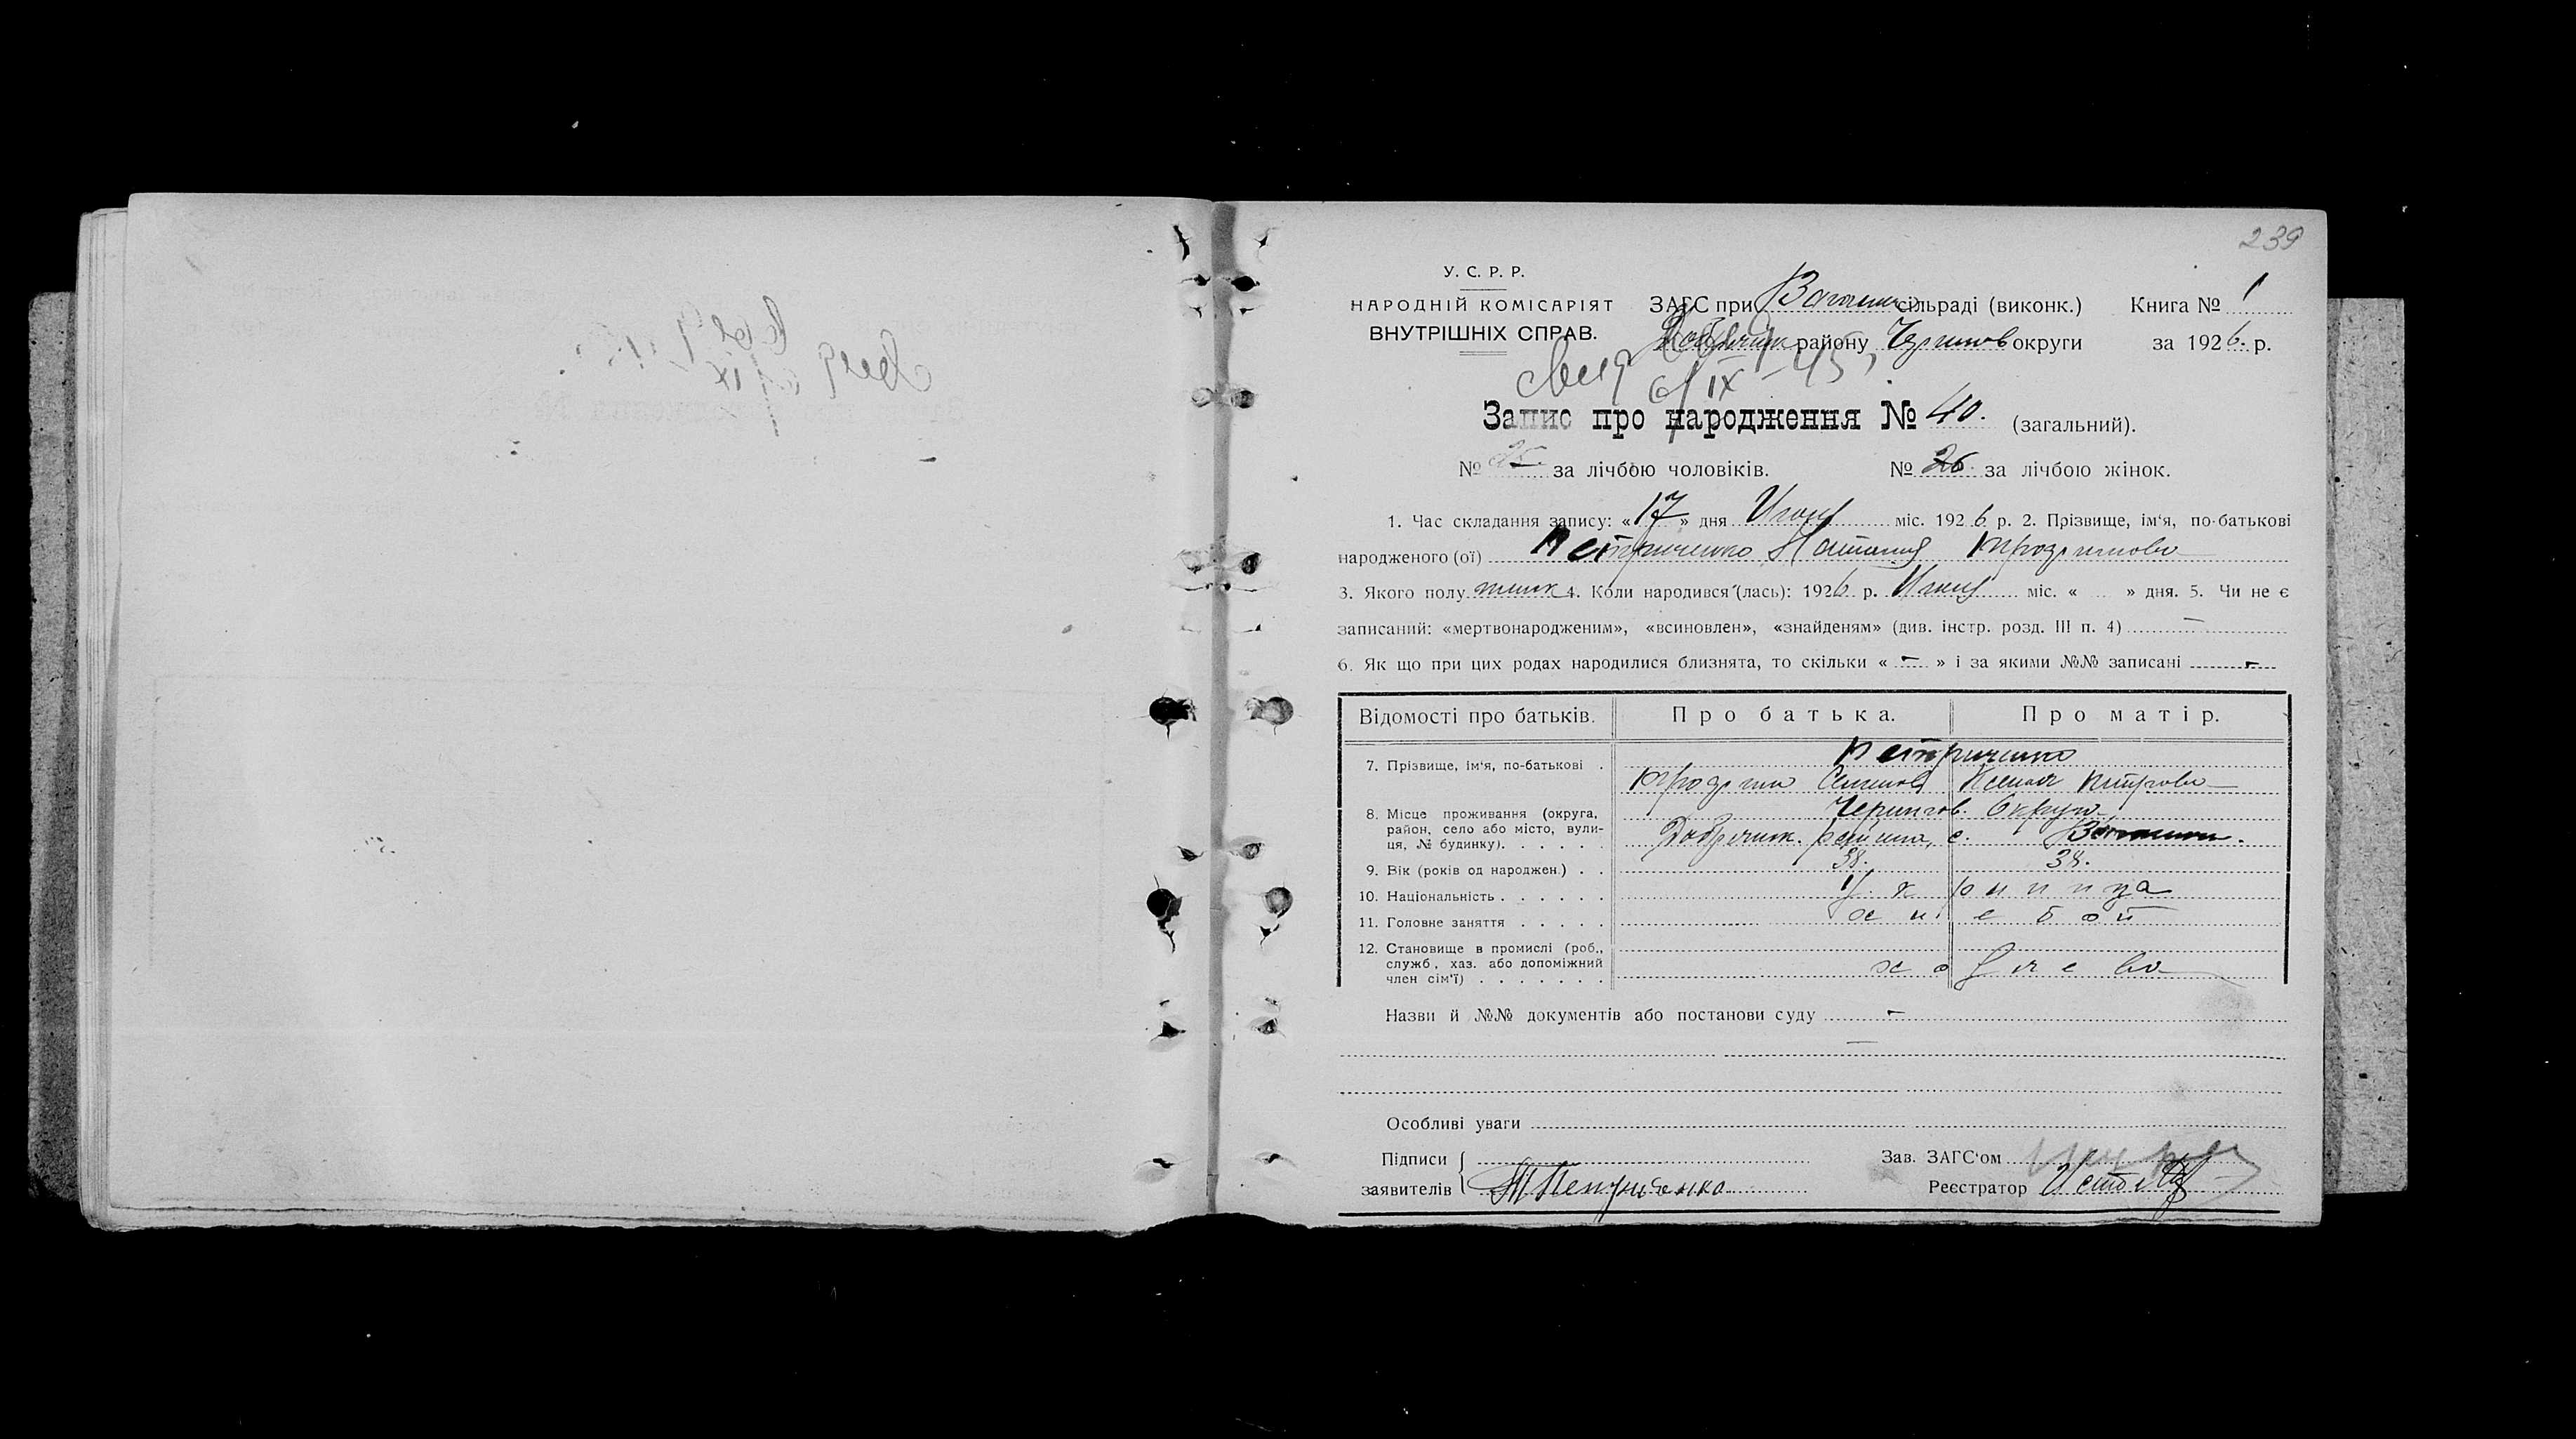 239
У. С. Р. Р.
НАРОДНІЙ КОМІСАРІЯТ ЗАГС при сільраді (виконк.) Книга № 1
ВНУТРІШНІХ СПРАВ. району Чернигов округи за 1926. р.
6/IX-45
Запис про народження № 40. (загальний).
№ за лічбою чоловіків. № 26. за лічбою жінок.
1. Час складання запису: «17» дня міс. 1926 р. 2. Прізвище, ім'я, по-батькові
народженого (ої) Петриченко Наталия
3. Якого полу жинк 4. Коли народився (лась): 1926 р. міс. « » дня. 5. Чи не є
записаний: «мертвонародженим», «всиновлен», «знайденям» (див. інстр. розд. III п. 4) –
6. Як що при цих родах народилися близнята, то скільки « – » і за якими №№ записані –
Відомості про батьків. Про батька. Про матір.
7. Прізвище, ім'я, по-батькові . Петриченко
Петрова
8. Місце проживання (округа, Чернигов. Округи,
район, село або місто, вули- району, с.
ця, № будинку). . . . . .
9. Вік (років од народжен.) . . 38. 38.
10. Національність . . . . . . Украинца
11. Головне заняття . . . . . хлебоп
12. Становище в промислі (роб.,
служб, хаз. або допоміжний
член сім'ї) . . . . . . .
Назви й №№ документів або постанови суду –
Особливі уваги
Підписи Зав. ЗАГС'ом
заявителів Петриченко Реєстратор